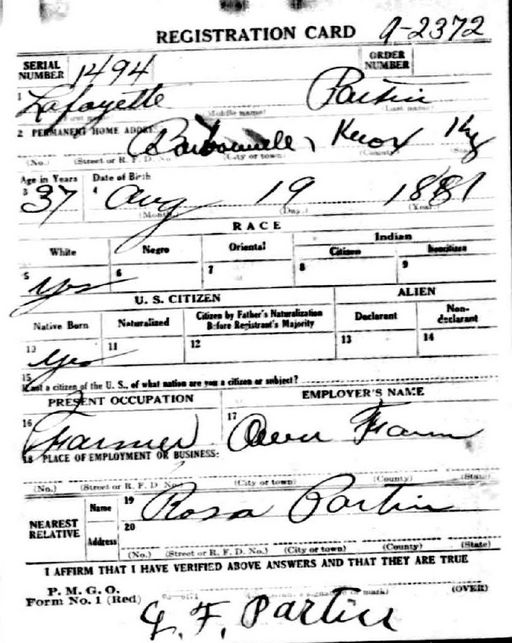 REGISTRATION CARD A-2372
SERIAL NUMBER 1494 ORDER NUMBER
1 Lafayette Partin
(Middle name)
2 PERMANENT HOME ADDRE Barbourville, Knox Ky
(No.) (Street or R. F. D. No (City or town) (County) (State)
Age in Years Date of Birth
3 37 4 Aug 19 1881
(Month) (Day) (Year)
RACE
White Negro Oriental Indian
Citizen Noncitizen
5 yes 6 7 8 9
U. S. CITIZEN ALIEN
Native Born Naturalized Citizen by Father's Naturalization Before Registrant's Majority Declarant Non-declarant
10 yes 11 12 13 14
15
not a citizen of the U. S., of what nation are you a citizen or subject?
PRESENT OCCUPATION EMPLOYER'S NAME
16 Farmer 17 Own Farm
18 PLACE OF EMPLOYMENT OR BUSINESS:
(No.) (Street or R. F. D No.) (City or town) (County) (State)
NEAREST RELATIVE Name 19 Rosa Partin
Address 20
(No.) (Street or R. F. D. No.) (City or town) (County) (State)
I AFFIRM THAT I HAVE VERIFIED ABOVE ANSWERS AND THAT THEY ARE TRUE
P. M. G. O.
Form No. 1 (Red) (Registrant's signature or mark) (OVER)
L. F. Partin